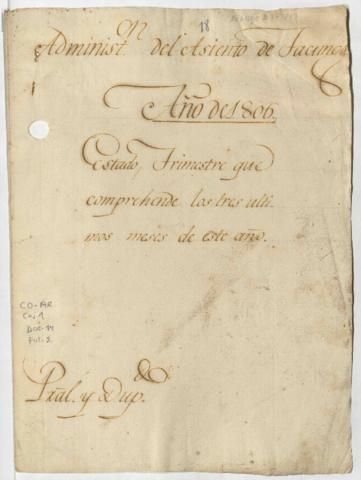 18
Administ.on del Asiento de Tacunga
Año de 1806.
Estado, Trimestre que
comprehende los tres ulti-
mos meses de este año.
CO-AR
Caj 1
Doc-14
Fol-2
Pral. y Dup.do